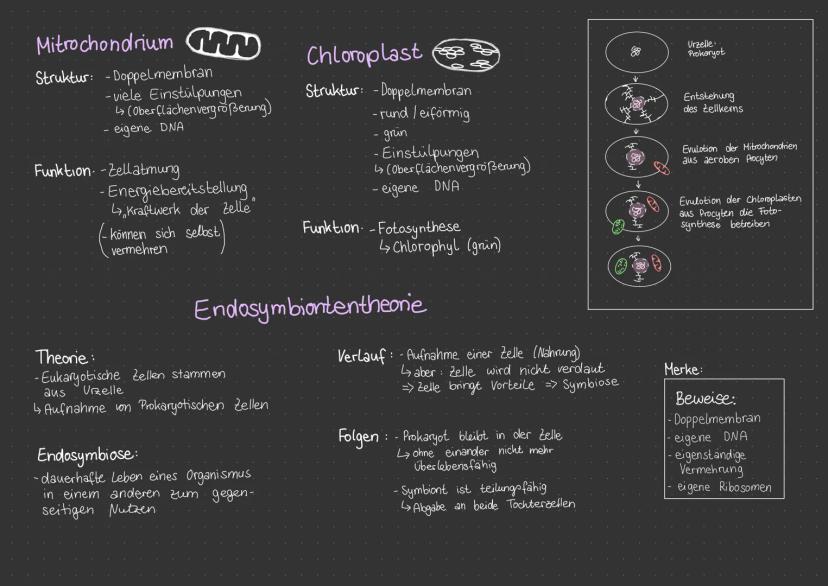 Mitrochondrium
Struktur: - Doppelmembran
- viele Einstülpungen
↳ (Oberflächenvergrößerung)
- eigene DNA
Funktion: - Zellatmung
- Energiebereitstellung
↳ „Kraftwerk der Zelle"
(- können sich selbst
vermehren)
Chloroplast
Struktur: - Doppelmembran
- rund / eiförmig
- grün
- Einstülpungen
↳ (Oberflächenvergrößerung)
- eigene DNA
Funktion: - Fotosynthese
↳ Chlorophyl (grün)
Urzelle:
Prokaryot
Entstehung
des Zellkerns
Evulotion der Mitochondrien
aus aeroben Procyten
Evulotion der Chloroplasten
aus Procyten die Foto-
synthese betreiben
Endosymbiontentheorie
Theorie:
- Eukaryotische Zellen stammen
aus Urzelle
↳ Aufnahme von Prokaryotischen Zellen
Endosymbiose:
- dauerhafte Leben eines Organismus
in einem anderen zum gegen-
seitigen Nutzen
Verlauf: - Aufnahme einer Zelle (Nahrung)
↳ aber: Zelle wird nicht verdaut
=> Zelle bringt Vorteile => Symbiose
Folgen: - Prokaryot bleibt in der Zelle
↳ ohne einander nicht mehr
überlebensfähig
- Symbiont ist teilungsfähig
↳ Abgabe an beide Tochterzellen
Merke:
Beweise:
- Doppelmembran
- eigene DNA
- eigenständige
Vermehrung
- eigene Ribosomen